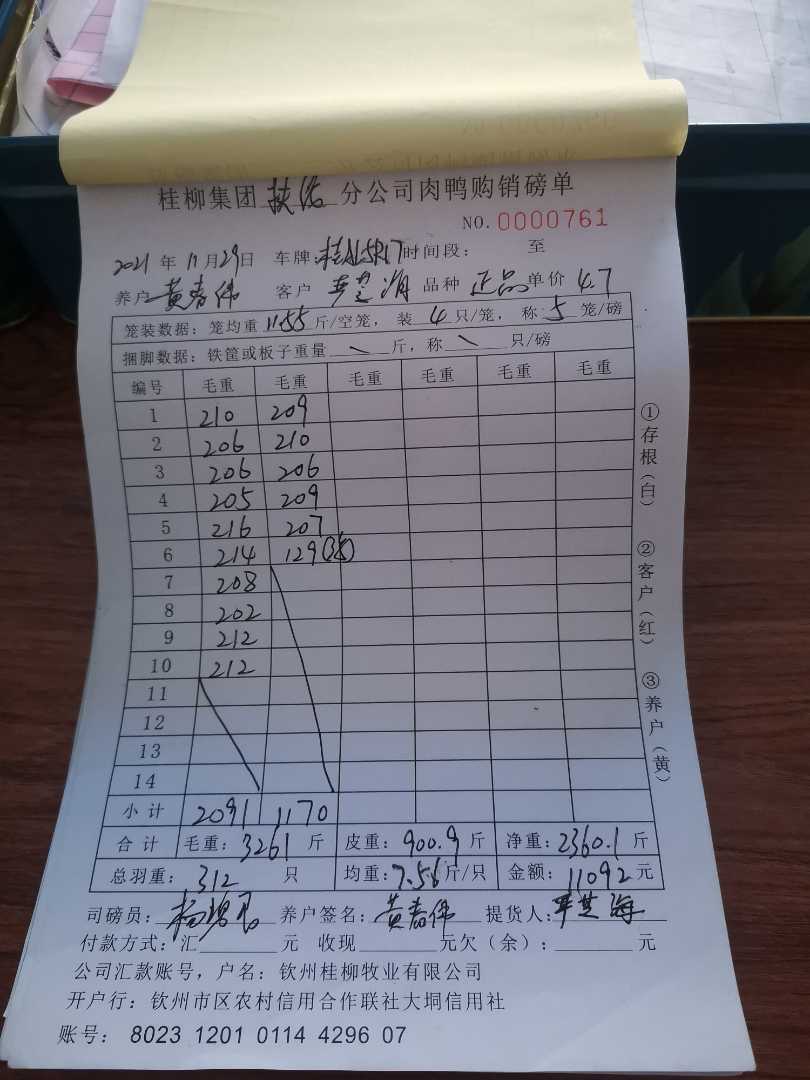 桂柳集团 扶绥 分公司肉鸭购销磅单
NO. 0000761
2021 年 11 月 29 日 车牌: 时间段: 至
养户 黄春伟 客户 品种 正品 单价 4.7
笼装数据: 笼均重 11.55 斤/空笼, 装 4 只/笼, 称: 5 笼/磅
捆脚数据: 铁筐或板子重量 \ 斤, 称 \ 只/磅
编号 毛重 毛重 毛重 毛重 毛重 毛重
1 210 209
2 206 210
3 206 206
4 205 209
5 216 207
6 214 129
7 208
8 202
9 212
10 212
11
12
13
14
小计 2091 1170
合计 毛重: 3261 斤 皮重: 900.9 斤 净重: 2360.1 斤
总羽重: 312 只 均重: 7.56 斤/只 金额: 11092 元
司磅员: 养户签名: 黄春伟 提货人:
付款方式: 汇 元 收现 元欠(余): 元
公司汇款账号, 户名: 钦州桂柳牧业有限公司
开户行: 钦州市区农村信用合作联社大垌信用社
账号: 8023 1201 0114 4296 07
①存根(白)
②客户(红)
③养户(黄)